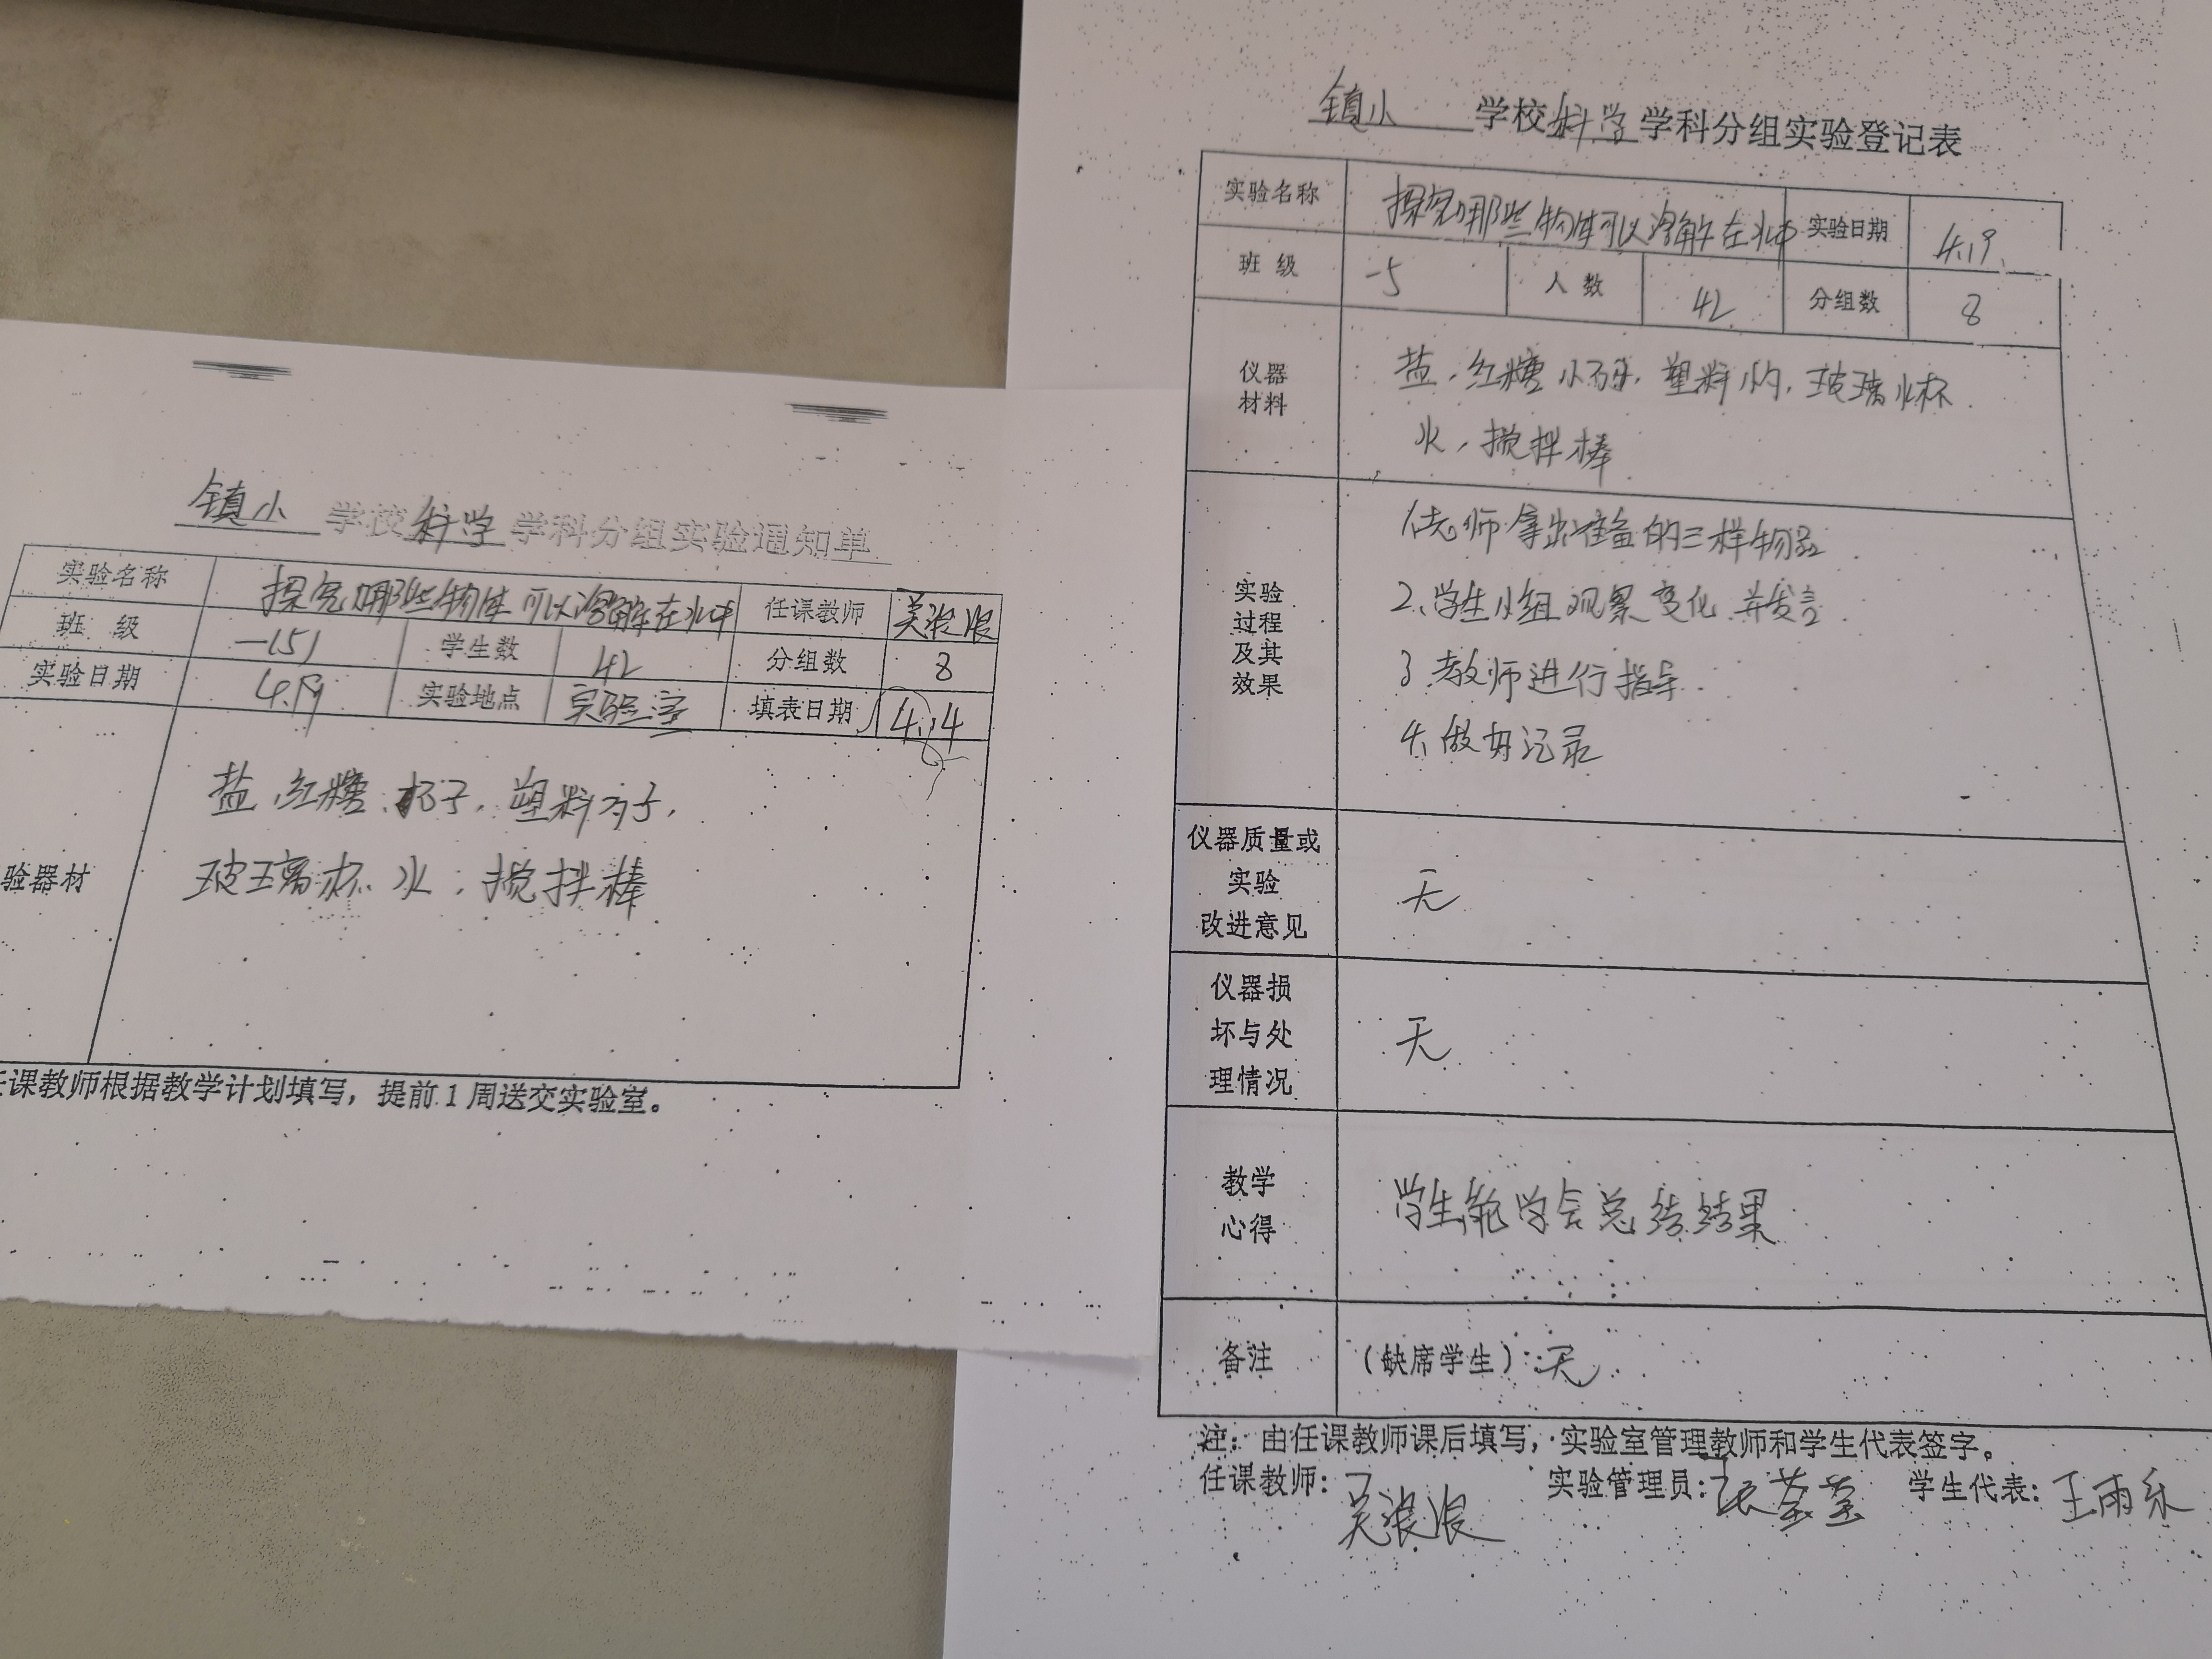 镇小 学校科学学科分组实验通知单
实验名称 探究哪些物体可以溶解在水中 任课教师 吴浪浪
班 级 一(5) 学生数 42 分组数 8
实验日期 4.19 实验地点 实验室 填表日期 4.14
验器材
盐、红糖、杯子、塑料勺子,
玻璃杯、水、搅拌棒
任课教师根据教学计划填写，提前1周送交实验室。
镇小 学校科学学科分组实验登记表
实验名称 探究哪些物体可以溶解在水中 实验日期 4.19.
班 级 一5 人 数 42 分组数 8
仪器
材料
盐、红糖 小石子、塑料勺、玻璃水杯
水、搅拌棒
实验
过程
及其
效果
1.老师拿出准备的三样物品
2、学生小组观察变化并发言
3.教师进行指导
4、做好记录
仪器质量或
实验
改进意见
无
仪器损
坏与处
理情况
无
教学
心得
学生能学会总结结果
备注 （缺席学生）：无
注：由任课教师课后填写，实验室管理教师和学生代表签字。
任课教师：吴浪浪 实验管理员：张莹莹 学生代表：王雨乐